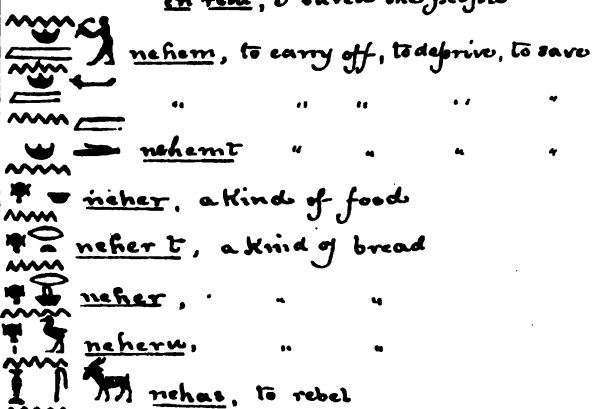 nehem, to carry off, to deprive, to save
" " " " "
nehemt " " " "
neher, a kind of food
neher t, a kind of bread
neher, " " "
neheru, " "
nehas, to rebel